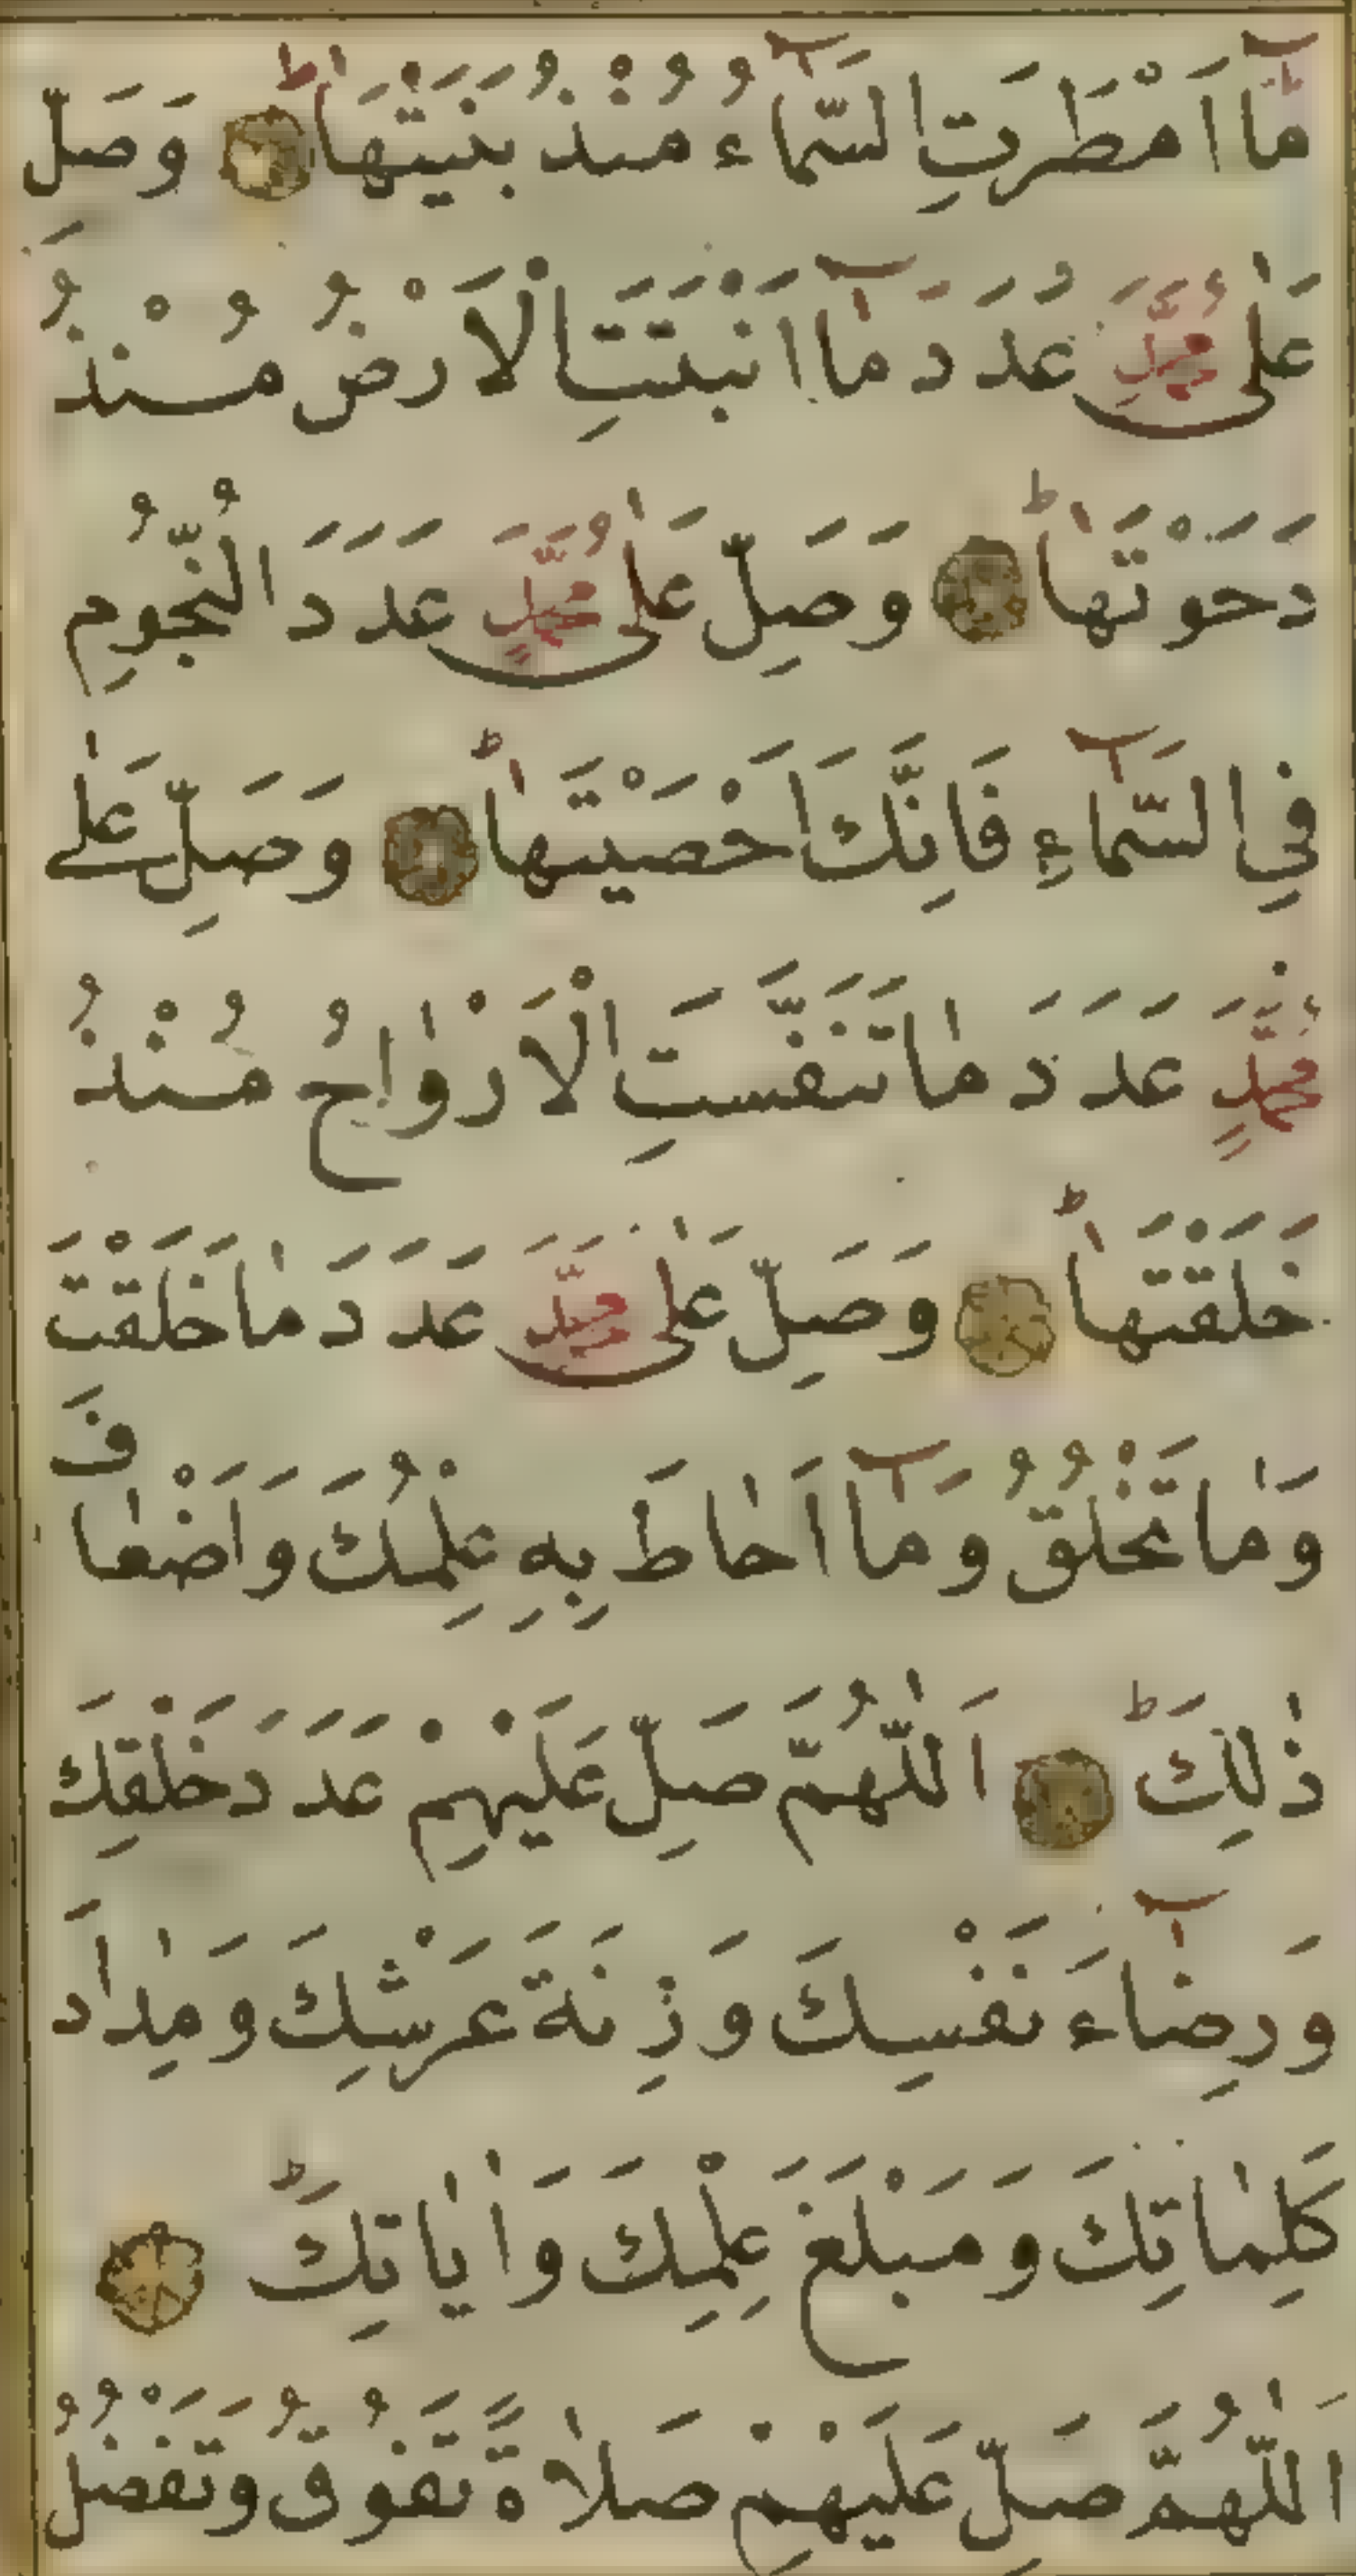 مَٓا اَمْطَرَتِ السَّمَٓاءُ مُنْذُ بَنَيْتَهَاؕ وَصَلِّ
عَلٰى مُحَمَّدٍ عَدَدَ مَٓا اَنْبَتَتِ الْاَرْضُ مُنْذُ
دَحَوْتَهَاؕ وَصَلِّ عَلٰى مُحَمَّدٍ عَدَدَ النُّجُومِ
فِي السَّمَٓاءِ فَاِنَّكَ اَحْصَيْتَهَاؕ وَصَلِّ عَلٰى
مُحَمَّدٍ عَدَدَ مَا تَنَفَّسَتِ الْاَرْوَاحُ مُنْذُ
خَلَقْتَهَاؕ وَصَلِّ عَلٰى مُحَمَّدٍ عَدَدَ مَا خَلَقْتَ
وَمَا تَخْلُقُ وَمَٓا اَحَاطَ بِهِ عِلْمُكَ وَاَضْعَافَ
ذٰلِكَؕ اَللّٰهُمَّ صَلِّ عَلَيْهِمْ عَدَدَ خَلْقِكَ
وَرِضَٓاءَ نَفْسِكَ وَزِنَةَ عَرْشِكَ وَمِدَادَ
كَلِمَاتِكَ وَمَبْلَغَ عِلْمِكَ وَاٰيَاتِكَؕ
اَللّٰهُمَّ صَلِّ عَلَيْهِمْ صَلَاةً تَفُوقُ وَتَفْضُلُ